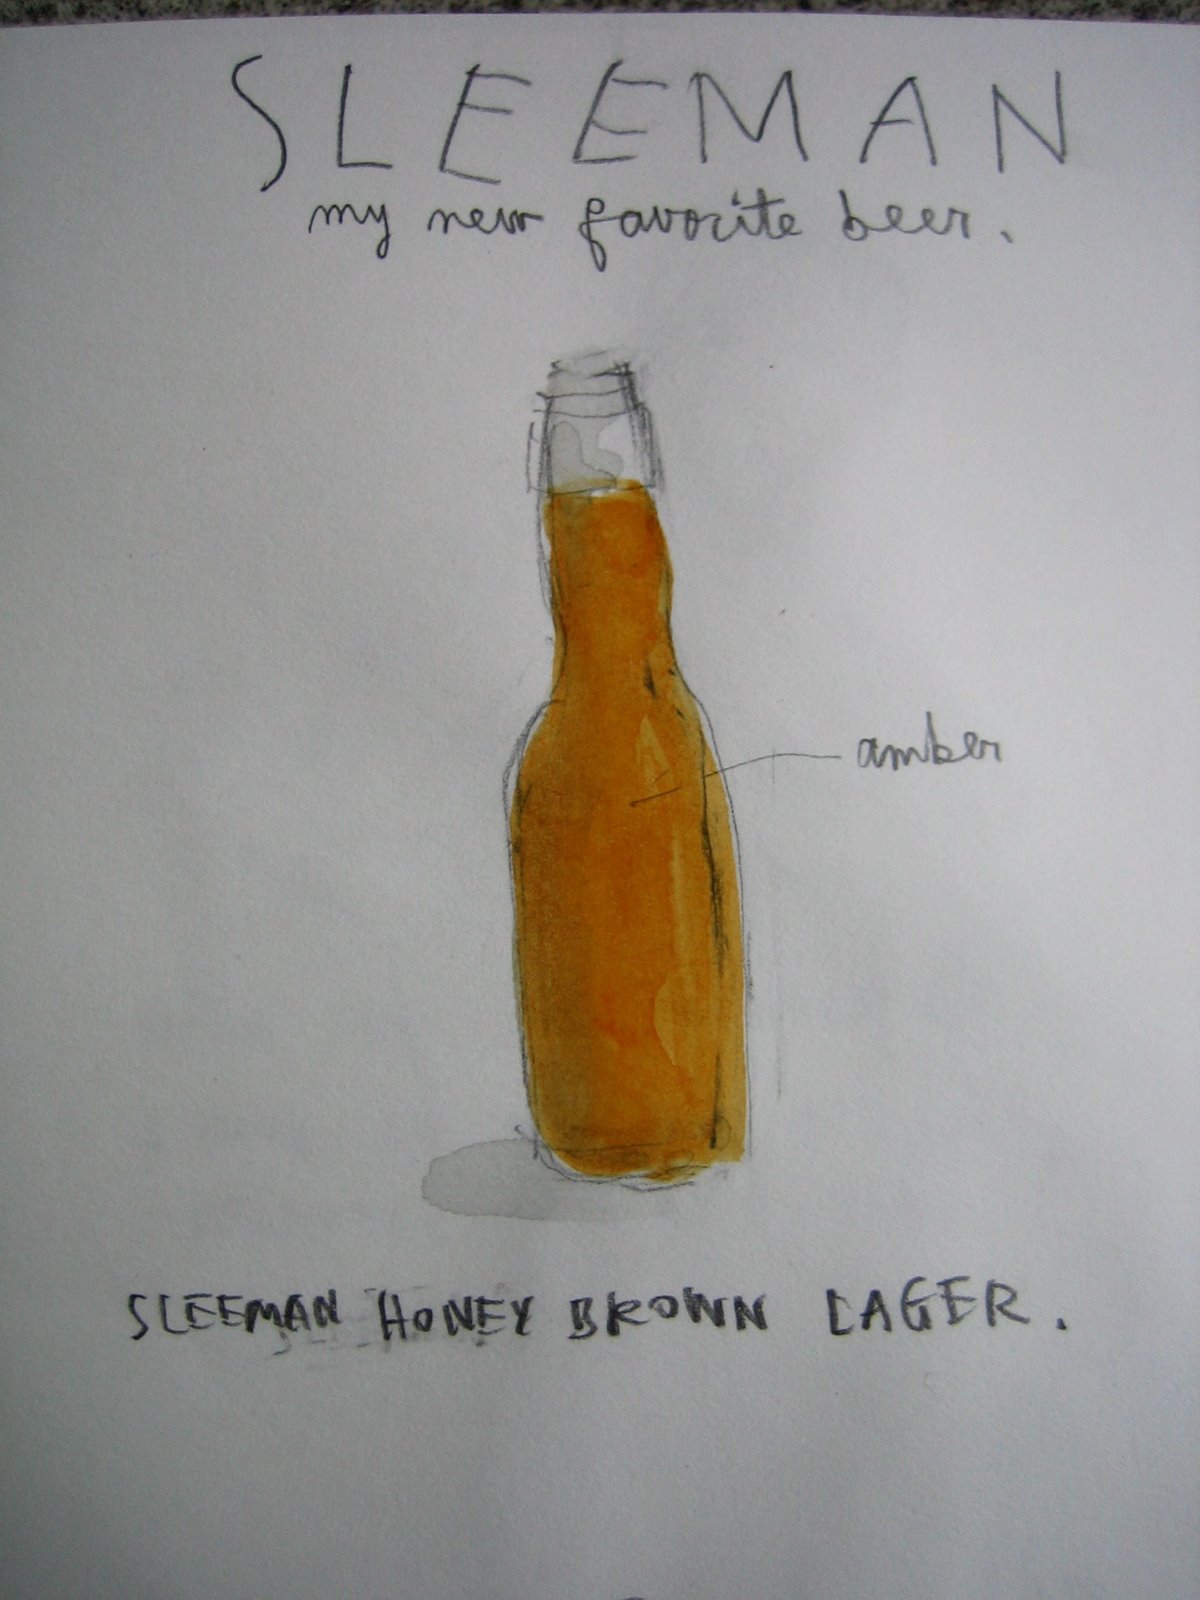 SLEEMAN
my new favorite beer.
amber
SLEEMAN HONEY BROWN LAGER.